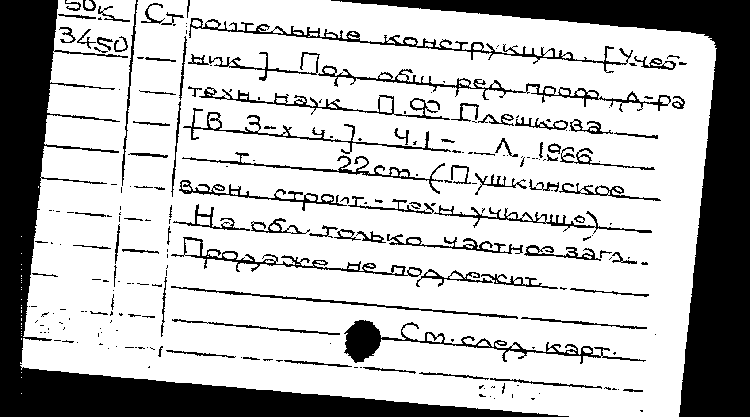 50к Строительные конструкции. [Учеб-
3450
ник]. Под общ. ред. проф., д-ра
техн. наук П.Ф Плешкова.
[В 3-х ч.]. Ч.1- Л., 1966
т. 22см. (Пушкинское
воен. строит.-техн. училище).
На обл. только частное загл.
Продаже не подлежит.
См. след. карт.